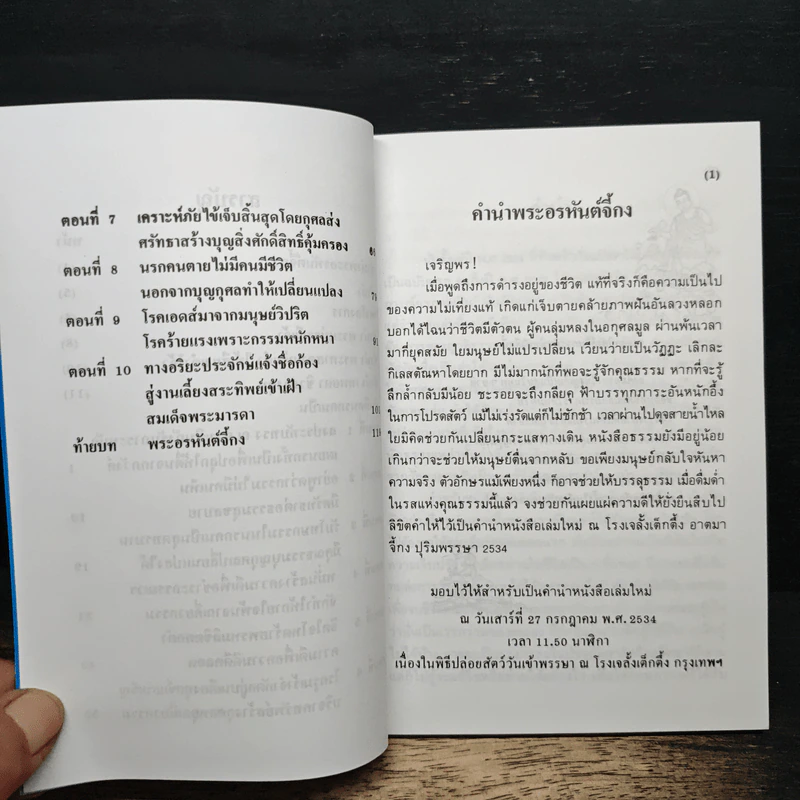 ตอนที่ 7 เคราะห์ภัยไข้เจ็บสิ้นสุดโดยกุศลส่ง
ศรัทธาสร้างบุญสิ่งศักดิ์สิทธิ์คุ้มครอง
ตอนที่ 8 นรกคนตายไม่มีคนมีชีวิต
นอกจากบุญกุศลทำให้เปลี่ยนแปลง
ตอนที่ 9 โรคเอดส์มาจากมนุษย์วิปริต
โรคร้ายแรงเพราะกรรมหนักหนา 91
ตอนที่ 10 ทางอริยะประจักษ์แจ้งชื่อก้อง
สู่งานเลี้ยงสระทิพย์เข้าเฝ้า
สมเด็จพระมารดา
ท้ายบท พระอรหันต์จี้กง
(1)
คำนำพระอรหันต์จี้กง
เจริญพร!
เมื่อพูดถึงการดำรงอยู่ของชีวิต แท้ที่จริงก็คือความเป็นไป
ของความไม่เที่ยงแท้ เกิดแก่เจ็บตายคล้ายภาพฝันอันลวงหลอก
บอกได้ไฉนว่าชีวิตมีตัวตน ผู้คนลุ่มหลงในอกุศลมูล ผ่านพ้นเวลา
มากี่ยุคสมัย ใยมนุษย์ไม่แปรเปลี่ยน เวียนว่ายเป็นวัฏฏะ เลิกละ
กิเลสตัณหาโดยยาก มีไม่มากนักที่พอจะรู้จักคุณธรรม หากที่จะรู้
ลึกล้ำกลับมีน้อย ชะรอยจะถึงกลียุค ฟ้าบรรทุกภาระอันหนักอึ้ง
ในการโปรดสัตว์ แม้ไม่เร่งรัดแต่ก็ไม่ชักช้า เวลาผ่านไปดุจสายน้ำไหล
ใยมิคิดช่วยกันเปลี่ยนกระแสทางเดิน หนังสือธรรมยังมีอยู่น้อย
เกินกว่าจะช่วยให้มนุษย์ตื่นจากหลับ ขอเพียงมนุษย์กลับใจหันหา
ความจริง ตัวอักษรแม้เพียงหนึ่ง ก็อาจช่วยให้บรรลุธรรม เมื่อดื่มด่ำ
ในรสแห่งคุณธรรมนี้แล้ว จงช่วยกันเผยแผ่ความดีให้ยั่งยืนสืบไป
ลิขิตคำให้ไว้เป็นคำนำหนังสือเล่มใหม่ ณ โรงเจลั้งเต็กตึ้ง อาตมา
จี้กง ปุริมพรรษา 2534
มอบไว้ให้สำหรับเป็นคำนำหนังสือเล่มใหม่
ณ วันเสาร์ที่ 27 กรกฎาคม พ.ศ. 2534
เวลา 11.50 นาฬิกา
เนื่องในพิธีปล่อยสัตว์วันเข้าพรรษา ณ โรงเจลั้งเต็กตึ้ง กรุงเทพฯ